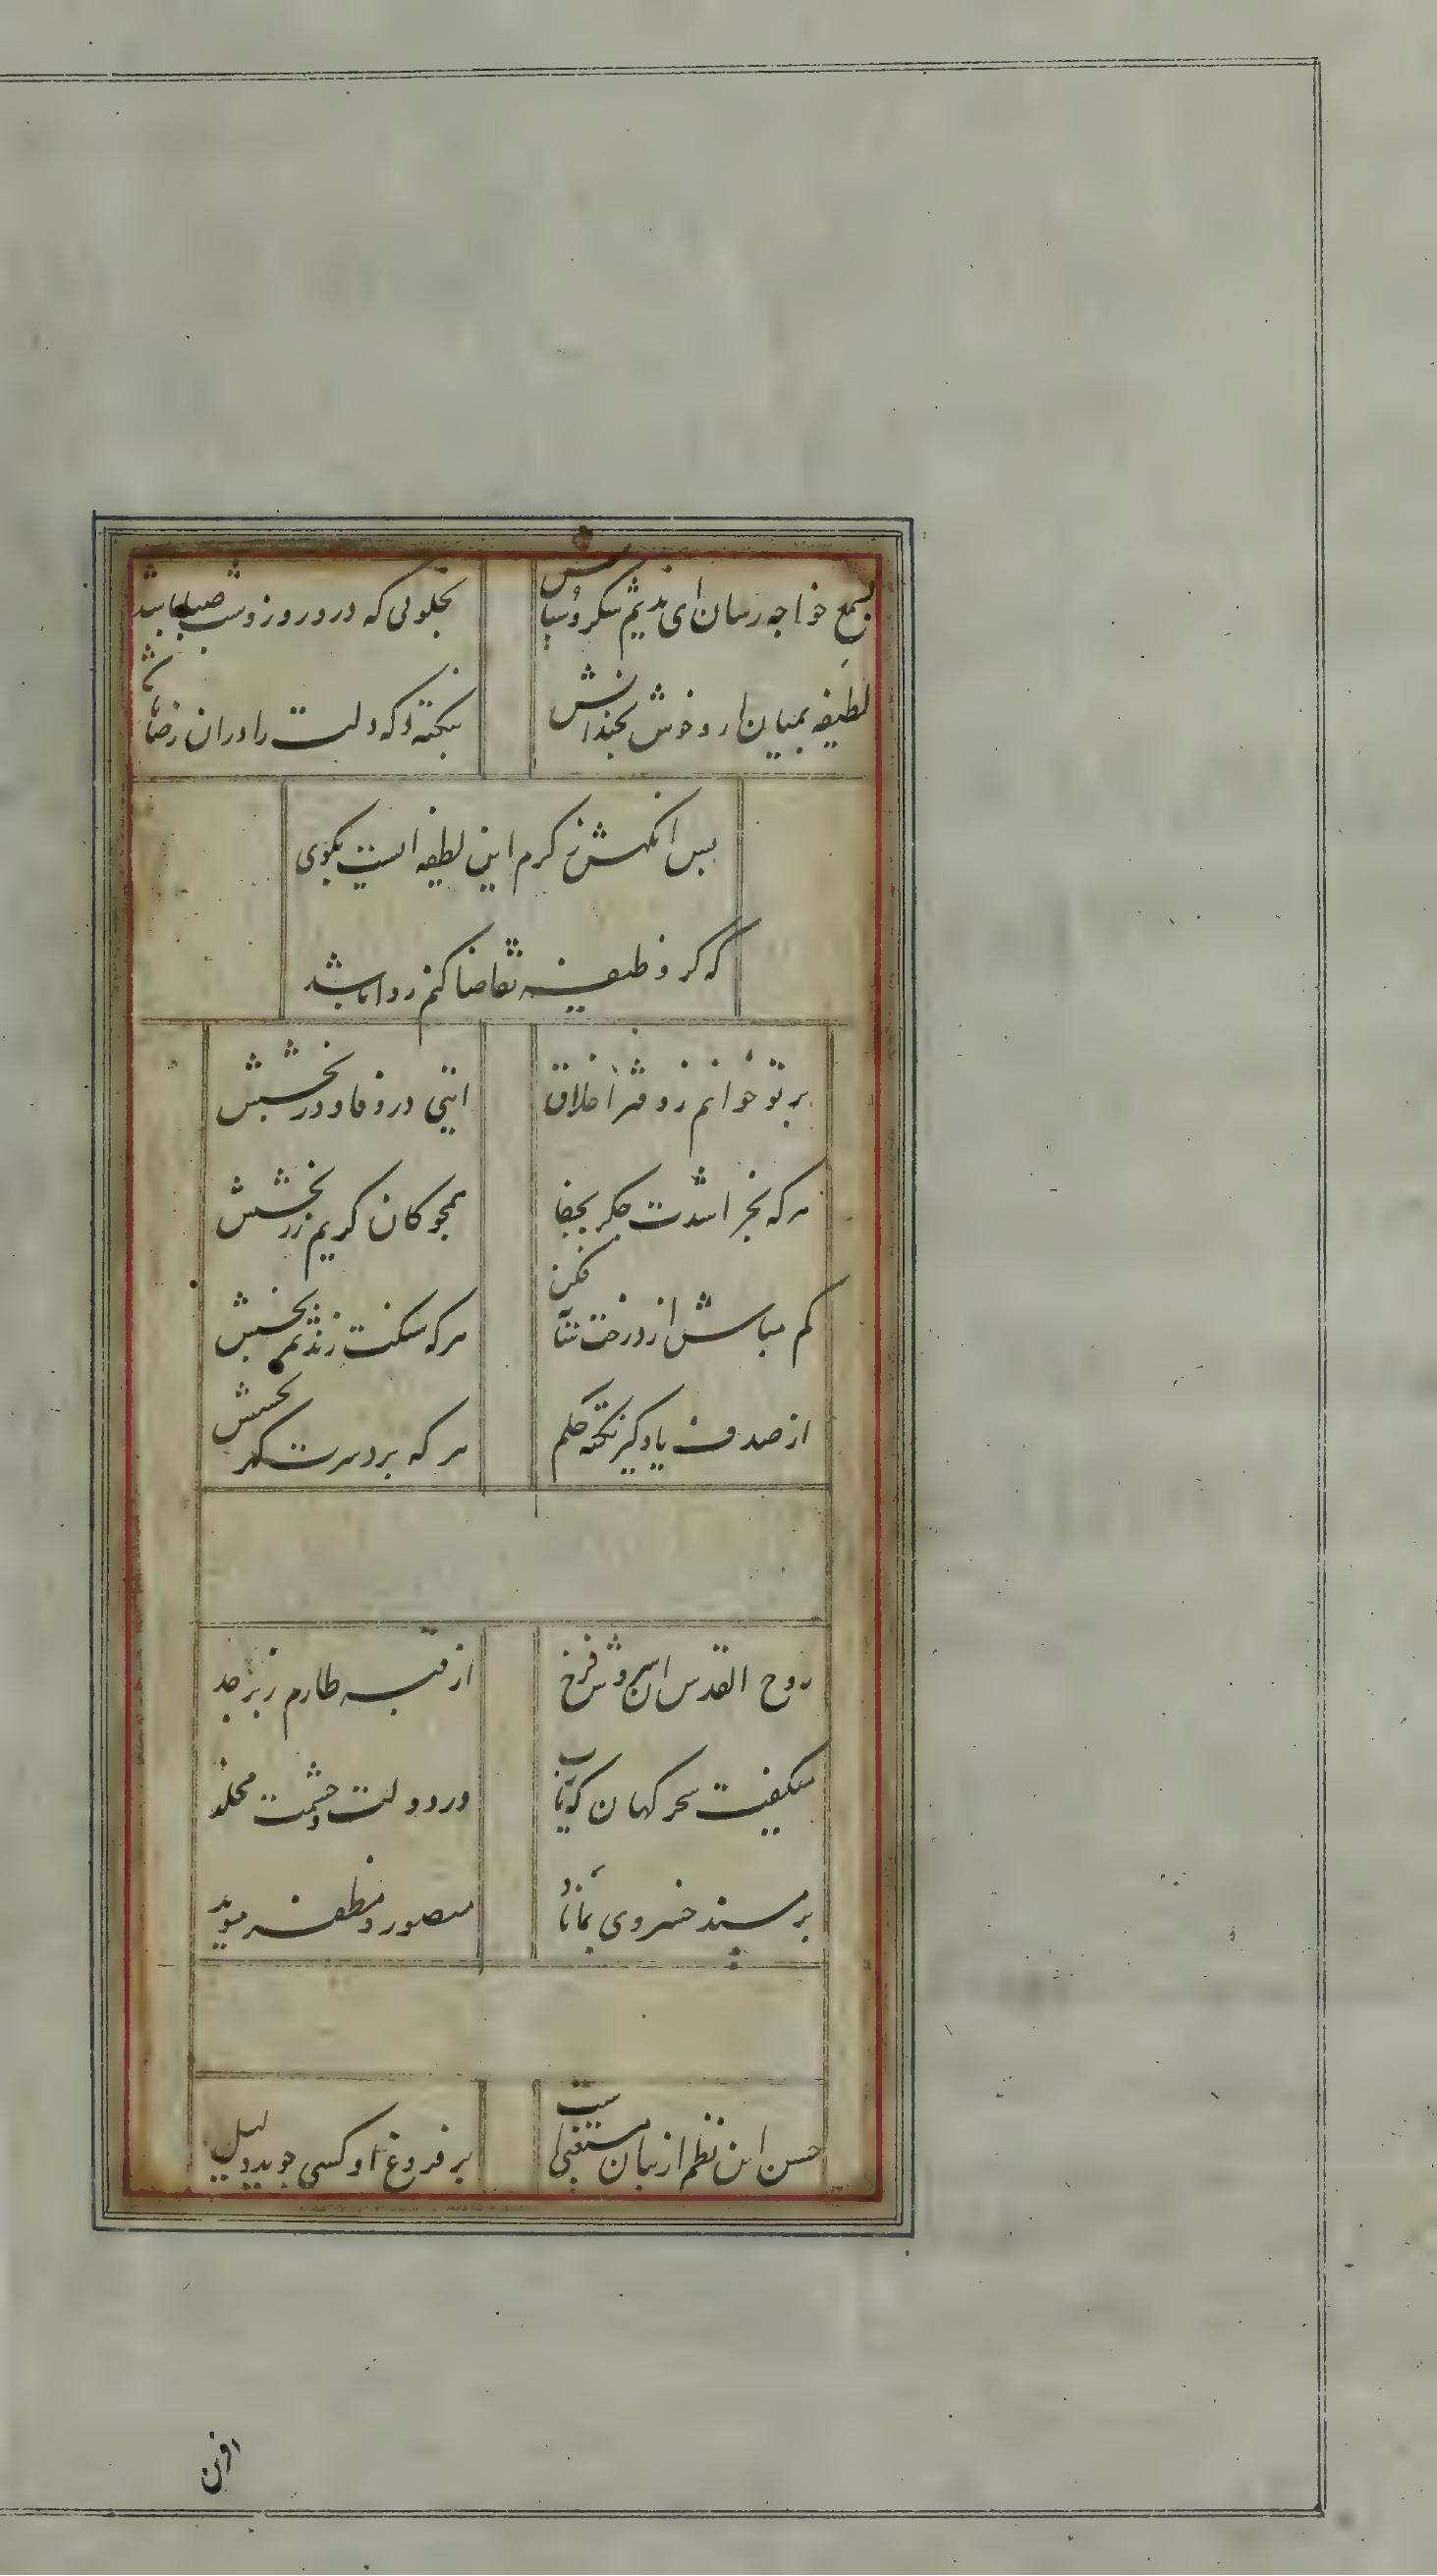 بسمع خواجه رسان ای ندیم شکر و سپاس
بخلوتی که درو روز و شب صبا باشد
لطیفه بمیان ار و خوش بخندانش
بنکته که دلت را دران رضا باشد
پس انکهش ز کرم این لطیفه است بکوی
که کر وظیفه تقاضا کنم روا باشد
بر تو خوانم ز دفتر اخلاق
ایتی در وفا و در بخشش
هرکه بخراشدت جکر بجفا
همچو کان کریم زر بخشش
کم مباش از درخت سایه فکن
هرکه سنکت زند ثمر بخشش
از صدف یاد کیر نکته حلم
هر که برد سرت کهر بخشش
روح القدس ان سروش فرخ
از قبه طارم زبرجد
میکفت سحر کهان که یا رب
در دولت و حشمت مخلد
بر مسند خسروی بماناد
منصور و مظفر موید
حسن این نظم از بیان مستغنی است
بر فروغ او کسی جوید دلیل